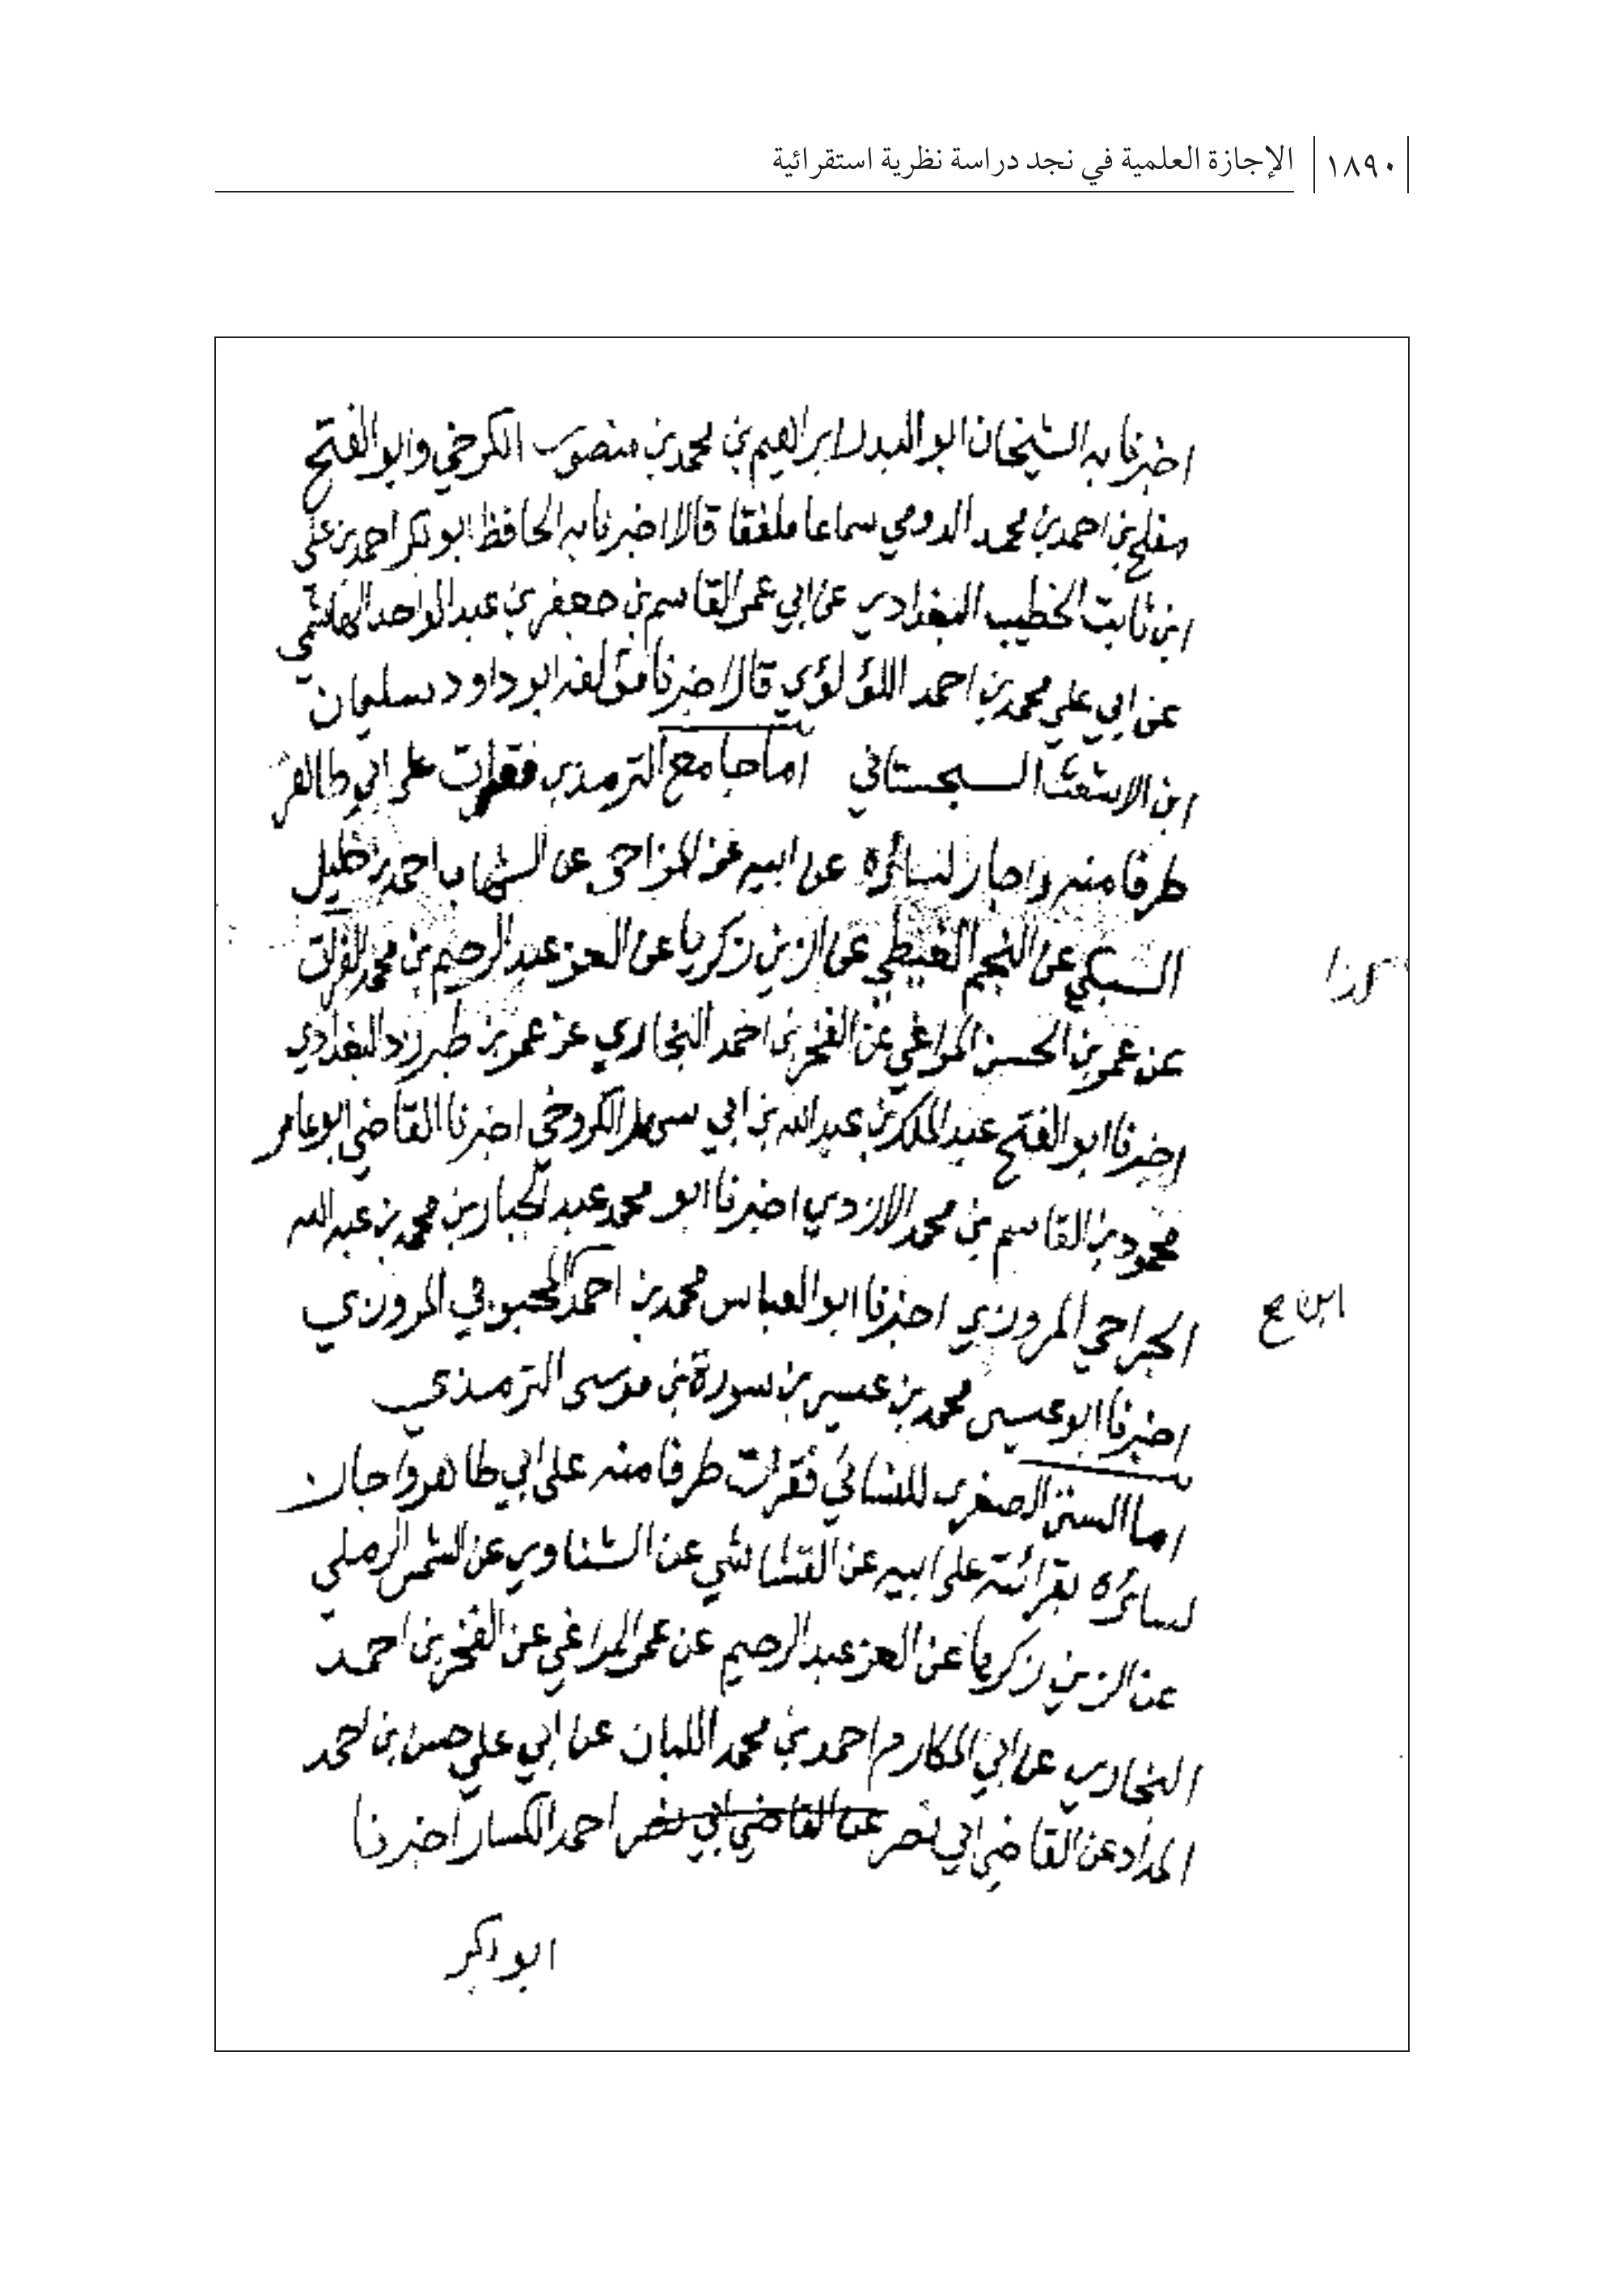 ١٨٩٠ الإجازة العلمية في نجد دراسة نظرية استقرائية
اخبرنا به الشيخان ابو البدر ابراهيم بن محمد بن منصور الكرخي وابو الفتح
مفلح بن احمد بن محمد الدومي سماعا ملفقا قالا اخبرنا به الحافظ ابو بكر احمد بن علي
ابن ثابت الخطيب البغدادي عن ابي عمر القاسم بن جعفر بن عبد الواحد الهاشمي
عن ابي علي محمد بن احمد اللؤلؤي قال اخبرنا مؤلفه ابو داود سليمان
ابن الاشعث السجستاني اما جامع الترمذي فقرات على ابي طاهر
طرفا منه واجاز لسائره عن ابيه عن المزاحي عن الشهاب احمد بن خليل
السبكي عن النجم الغيطي عن الزين زكريا عن العز عبد الرحيم بن محمد الفرات
عن عمر بن الحسن المراغي عن الفخر بن احمد البخاري عن عمر بن طبرزد البغدادي
اخبرنا ابو الفتح عبد الملك بن عبد الله بن ابي سهل الكروخي اخبرنا القاضي ابو عامر
محمود بن القاسم بن محمد الازدي اخبرنا ابو محمد عبد الجبار بن محمد بن عبد الله
ابن صح
الجراحي المروزي اخبرنا ابو العباس محمد بن احمد المحبوبي المروزي
اخبرنا ابو عيسى محمد بن عيسى بن سورة بن موسى الترمذي
اما السنن الصغرى للنسائي فقرات طرفا منه على ابي طاهر واجاز
لسائره بقرائته على ابيه عن القشاشي عن الشناوي عن الشمس الرملي
عن الزين زكريا عن العز عبد الرحيم عن عمر المراغي عن الفخر بن احمد
البخاري عن ابي المكارم احمد بن محمد اللبان عن ابي علي حسن بن احمد
الحداد عن القاضي ابي نصر عن القاضي ابي نصر احمد الكسار اخبرنا
ابو بكر